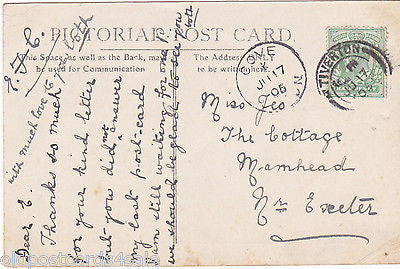 PICTORIAL POST CARD.
This Space, as well as the Back, may
be used for Communication
The Address ONLY
to be written here.
TIVERTON
JY 17
05
JY 17
05
Miss
The Cottage
Mamhead
Nr. Exeter
Dear E.
Thanks so much
for your kind letter
but you did not answer
my last post-card
am still waiting for one
we should be glad to see you
both
with much love to both